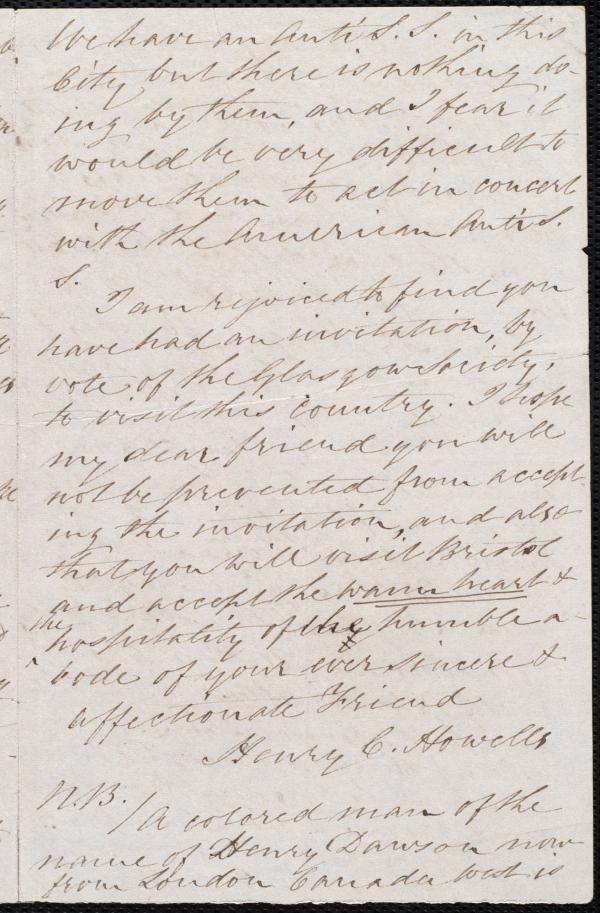 We have an Anti S. S. in this
City, but there is nothing do-
ing by them, and I fear it
would be very difficult to
move them to act in concert
with the American Anti S.
S.
I am rejoiced to find you
have had an invitation, by
vote of the Glasgow Society,
to visit this country. I hope
my dear friend you will
not be prevented from accept-
ing the invitation, and also
that you will visit Bristol
and accept the warm heart &
the
hospitality of the humble a-
bode of your ever sincere &
affectionate Friend
Henry C. Howells
N.B.
/ A colored man of the
name of Henry Dawson now
from London Canada West is